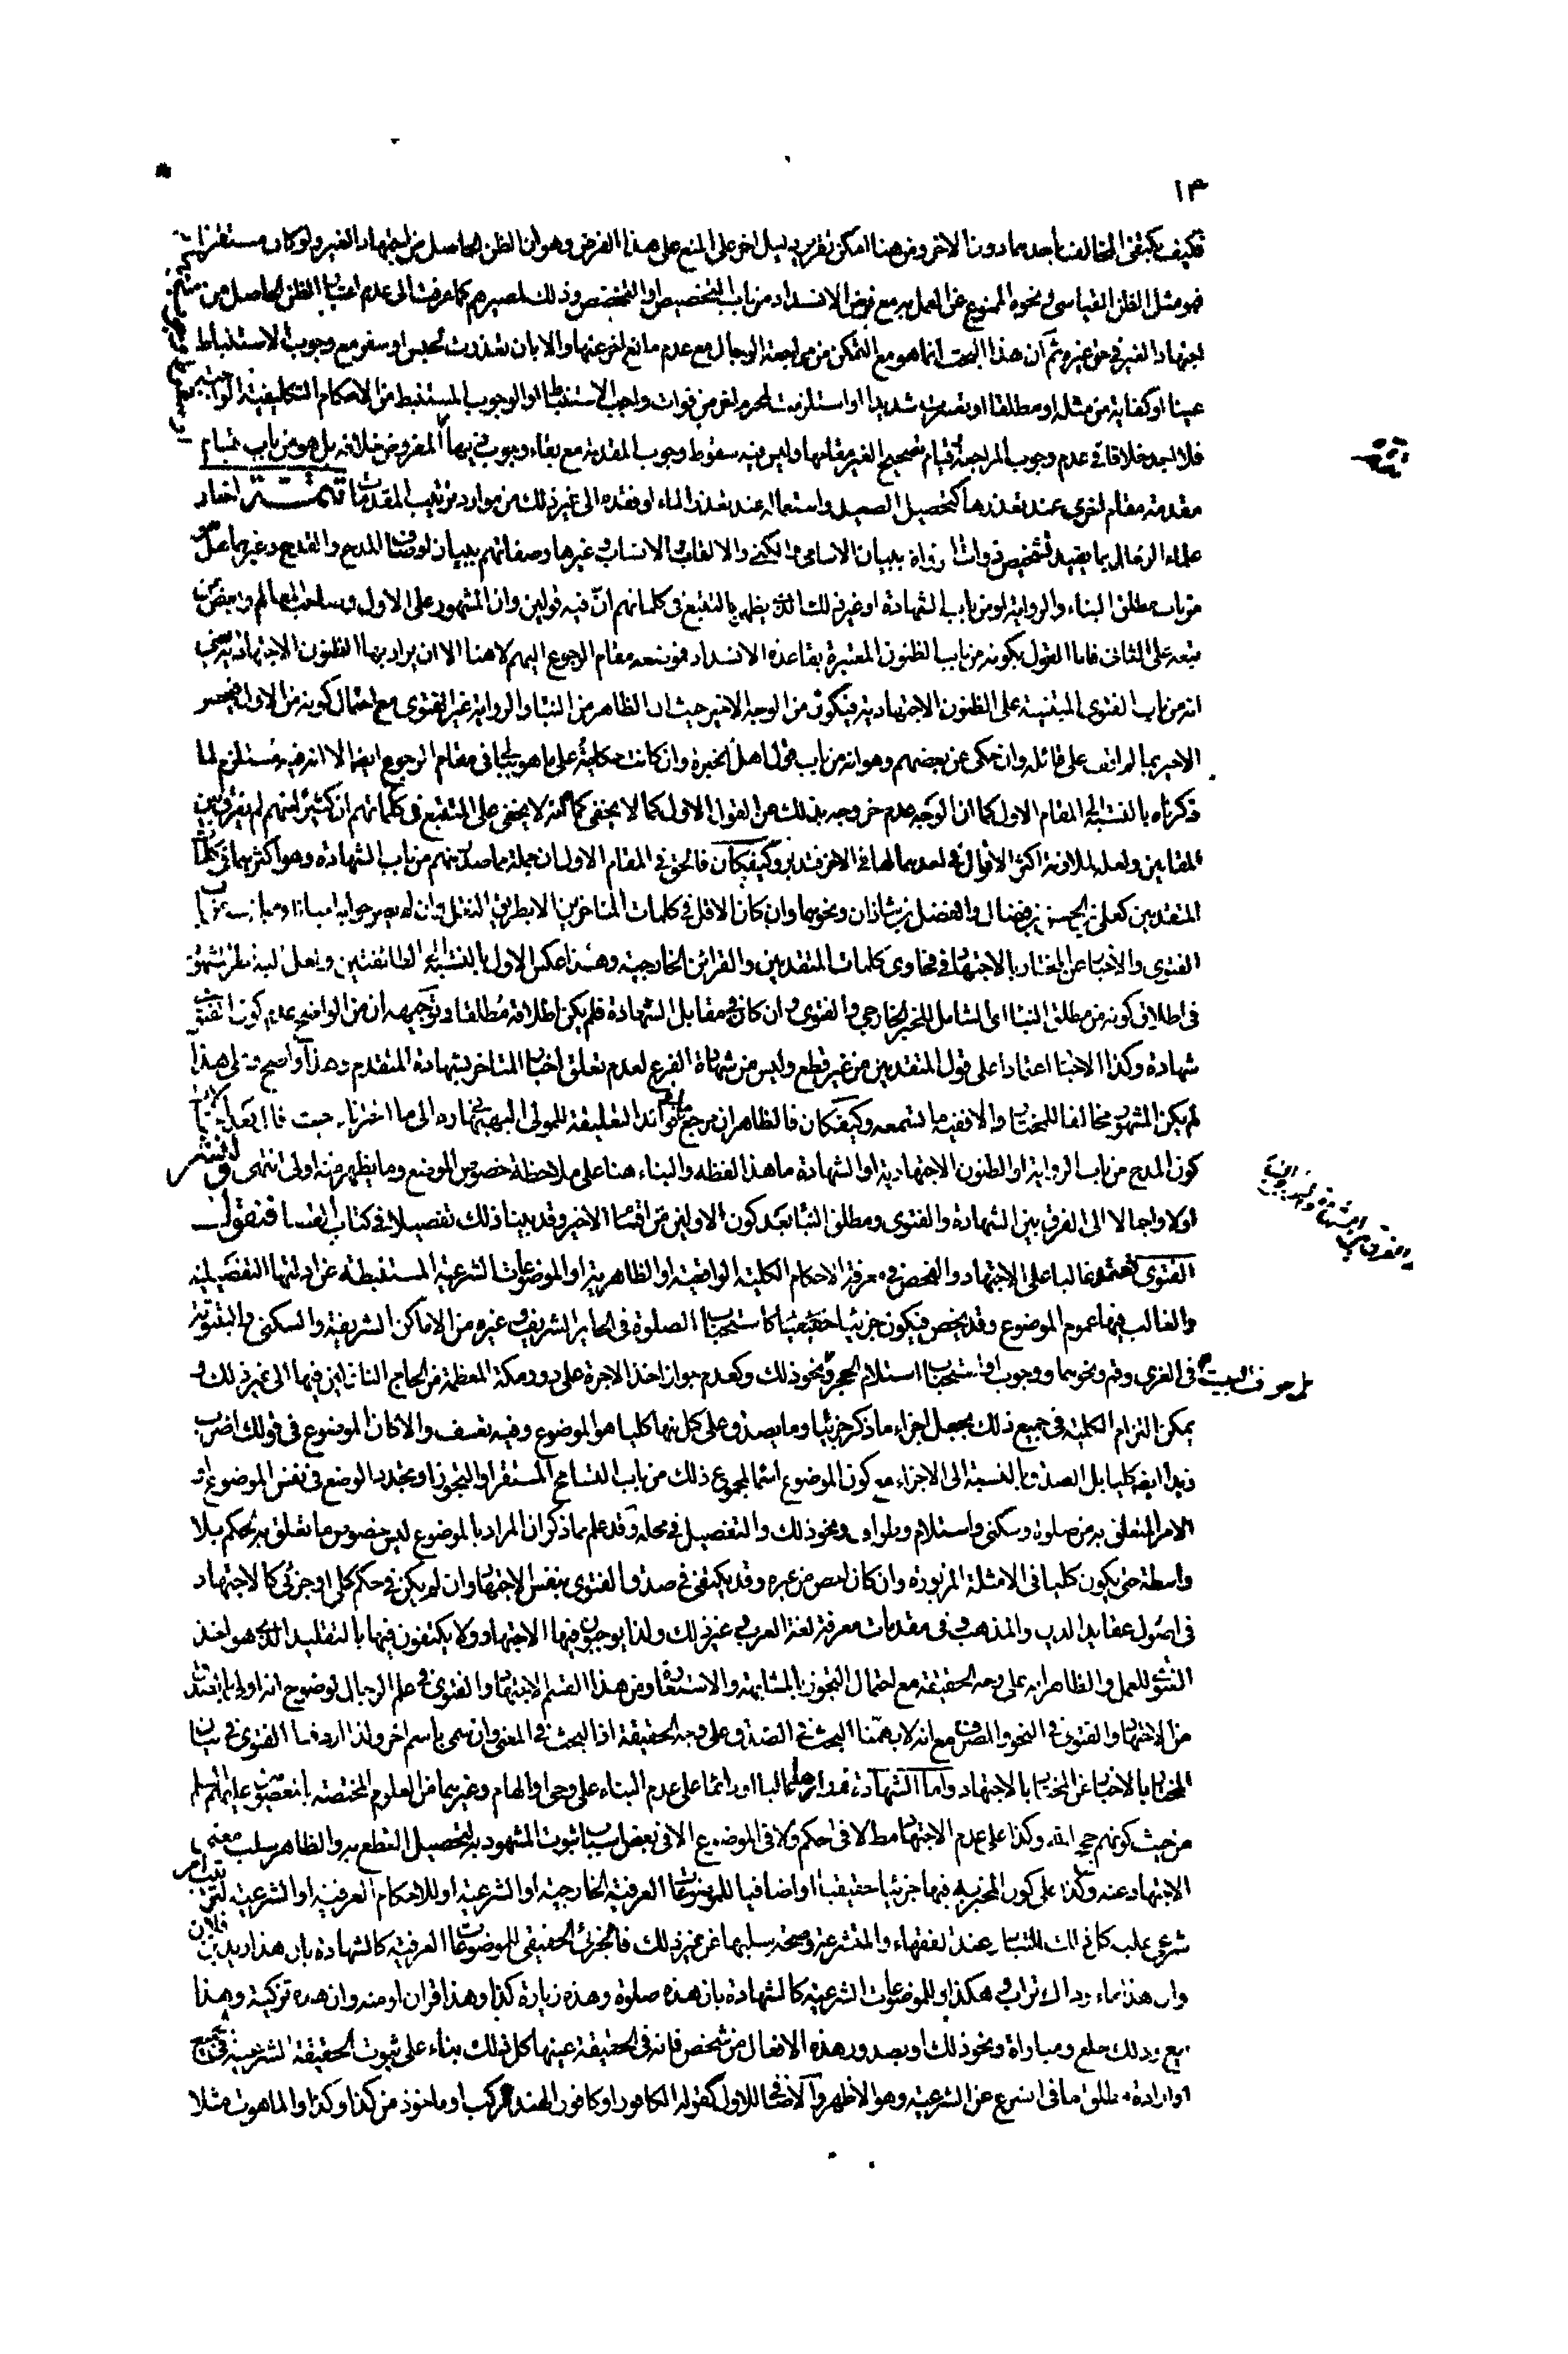 ١٣
فكيف يكتفى المخالف بأحدهما دون الاخر ومن هنا امكن تقرير دليل اخر على المنع على هذا الفرض وهو ان الظن الحاصل من اجتهاد الغير ولو كان مستقرا
فهو مثل الظن القياسى ونحوه الممنوع عن العمل به مع فرض الانسداد من باب التخصيص او التخصص وذلك لمصيرهم كما عرفت الى عدم اعتبار الظن الحاصل من
اجتهاد الغير فى حق غيره ثم ان هذا البحث انما هو مع التمكن من مراجعة الرجال مع عدم مانع اخر عنها والا بان تعذرت لحبس او سفر مع وجوب الاستنباط
عينا او كفاية من مثله او مطلقا او تعسرت شديدا او استلزمت لمحرم اخر من فوات واجب الاستنباط او الوجوب المستنبط من الاحكام التكليفية
فلا اجد خلافا فى عدم وجوب المراجعة وقيام تصحيح الغير مقامها وليس فيه سقوط وجوب المقدمة مع بقاء وجوب ذيها المفروض خلافه بل هو من باب قيام
مقدمة مقام اخرى عند تعذرها كتحصيل الصعيد واستعماله عند تعذر الماء او فقده الى غير ذلك من موارد ترتيب المقدمات اخبار
علماء الرجال بما يفيد تشخيص ذوات الرواة ببيان الاسامى والكنى والالقاب والانساب وغيرها وصفاتهم ببيان اوصاف المدح والقدح وغيرهما هل هو
من باب مطلق النباء والرواية او من باب الشهادة او غير ذلك الذى يظهر بالتتبع فى كلماتهم ان فيه قولين وان المشهور على الاول وصاحب المعالم وبعض من
تبعه على الثانى فاما القول بكونه من باب الظنون المعتبرة بقاعدة الانسداد فموضعه مقام الرجوع اليهم لا هنا الا ان يراد بها الظنون الاجتهادية بمعنى
انه من باب الفتوى المبتنية على الظنون الاجتهادية فيكون من الوجه الاخير حيث ان الظاهر من النباء والرواية غير الفتوى مع احتمال كونه من الاول فينحصر
الاخير بما لم اقف على قائله وان حكى عن بعضهم وهو انه من باب قول اهل الخبرة وان كانت حكايته على ما هو ببالى فى مقام الرجوع ايضا الا انه فيه مستلزم لما
ذكرناه بالنسبة الى المقام الاول كما ان الوجه عدم خروجه بذلك عن القول الاول كما لا يخفى كما انه لا يخفى على المتتبع فى كلماتهم ان كثيرا منهم لم يفرق بين
المقامين ولعله لملازمة اكثر الاقوال فى احدهما لها فى الاخر فتدبر وكيفكان فالحق فى المقام الاول ان جملة مما صدر منهم من باب الشهادة وهو اكثر مما فى كلمات
المتقدمين كعلى بن الحسن بن فضال والفضل بن شاذان ونحوهما وان كان الاقل فى كلمات المتاخرين الا بطريق النقل
الفتوى والاخبار عن المختار بالاجتهاد فى فحاوى كلمات المتقدمين والقرائن الخارجية وهذا عكس الاول بالنسبة الى الطائفتين ولعل اليه نظر المشهور
فى اطلاق كونه من مطلق النباء اى الشامل للخبر الخارجى والفتوى وان كان فى مقابل الشهادة فلم يكن اطلاقه مطلقا وتوجيهه ان من الواضح عدم كون الفتوى
شهادة وكذا الاخبار اعتمادا على قول المتقدمين من غير قطع وليس من شهادة الفرع لعدم تعلق اخبار المتاخر بشهادة المتقدم وهذا واضح فعلى هذا
لم يكن المشهور مخالفا للمختار والا ففيه ما تسمعه وكيفكان فالظاهر ان مرجع ما فى فوائد التعليقة للمولى البهبهانى الى ما اخترناه حيث قال
كون المدح من باب الرواية او الظنون الاجتهادية او الشهادة ما هذا لفظه والبناء هنا على ملاحظة خصوص الموضع وما يظهر منه اولى انتهى ولنشر
اولا واجمالا الى الفرق بين الشهادة والفتوى ومطلق النباء بعد كون الاولين من اقسام الاخير وقد بينا ذلك تفصيلا فى كتاب القضاء فنقول
الفتوى تعتمد غالبا على الاجتهاد والفحص فى معرفة الاحكام الكلية الواقعية او الظاهرية او الموضوعات الشرعية المستنبطة عن ادلتها التفصيلية
والغالب فيها عموم الموضوع وقد يخص فيكون جزئيا حقيقيا كاستحباب الصلوة فى الحاير الشريف وغيره من الاماكن الشريفة والسكنى والبيتوتة
فى الغرى وقم ونحوهما ووجوب او استحباب استلام الحجر ونحو ذلك وكعدم جواز اخذ الاجرة على دور مكة المعظمة من الحاج النازلين فيها الى غير ذلك و
يمكن التزام الكلية فى جميع ذلك بجعل اجزاء ما ذكر جزئيا وما يصدق على كل منها كليا هو الموضوع وفيه تعسف والا كان الموضوع فى قولك اضرب
زيدا ايضا كليا بل الصدق بالنسبة الى الاجزاء مع كون الموضوع اسما لمجموع ذلك من باب التسامح المستقر او التجوز او تجدد الوضع فى نفس الموضوع او
الامر المتعلق به من صلوة وسكنى واستلام وطواف ونحو ذلك والتفصيل فى محله وقد علم مما ذكر ان المراد بالموضوع ليس خصوص ما تعلق به الحكم بلا
واسطة حتى يكون كليا فى الامثلة المزبورة وان كان اخص من غيره وقد يكتفى فى صدق الفتوى بنفس الاجتهاد وان لم يكن فى حكم كلى او جزئى كالاجتهاد
فى اصول عقايد الدين والمذهب وفى مقدمات معرفة لغة العرب وغير ذلك ولذا يوجبون فيها الاجتهاد ولا يكتفون فيها بالتقليد الذى هو اخذ
الفتوى للعمل والظاهر انه على وجه الحقيقة مع احتمال التجوز بالمشابهة والاستعارة ومن هذا القسم الاجتهاد والفتوى فى علم الرجال لوضوح انه اولى
من الاجتهاد والفتوى فى النحو والصرف مع انه لا يهمنا البحث فى الصدق على وجه الحقيقة اذ البحث فى المعنى وان سمى باسم اخر ولذا اردفنا الفتوى فى بيان
المختار بالاخبار عن المختار بالاجتهاد واما الشهادة فمدارها غالبا او دائما على عدم البناء على وحى او الهام وغيرهما من العلوم المختصة بالمعصومين عليهم السلم
من حيث كونهم حجج الله وكذا على عدم الاجتهاد مطلقا لا فى الحكم ولا فى الموضوع الا فى بعض اسباب ثبوت المشهود به لتحصيل القطع به والظاهر سلب معنى
الاجتهاد عنه وكذا على كون المخبر به فيها جزئيا حقيقيا او اضافيا للموضوعات العرفية الخارجية او الشرعية او للاحكام العرفية او الشرعية
شرعى عليه كل ذلك للتبادر عند الفقهاء والمتشرعة وصحة سلبها عن غير ذلك فالجزئى الحقيقى للموضوعات العرفية كالشهادة بان هذا زيد بن فلان
وان هذا ماء وذاك تراب وهكذا وللموضوعات الشرعية كالشهادة بان هذه صلوة وهذه زيارة كذا وهذا قران او منه وان هذه تزكية وهذا
بيع وذلك خلع ومباراة ونحو ذلك او بصدور هذه الافعال من شخص فانه فى الحقيقة عينها كل ذلك بناء على ثبوت الحقيقة الشرعية
او ارادة مطلق ما فى الشرع عن الشرعية وهو الاظهر والاضافى للاول كقوله الكافور او كافور الهند مركب او ماخوذ من كذا وكذا والماهوت مثلا